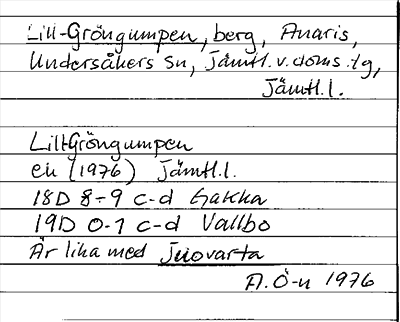 Lill-Gröngumpen, berg, Anaris,
Undersåkers sn, Jämtl.v.doms.tg,
Jämtl.l.
Lill-Gröngumpen
ek (1976) Jämtl.l.
18D 8-9 c-d Gakka
19D 0-1 c-d Vallbo
Är lika med Juovarta
A.Ö-n 1976